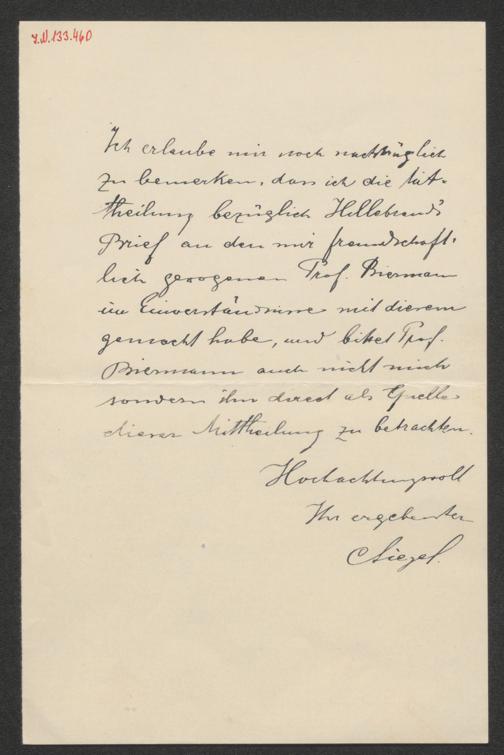 I.N.133.460
Ich erlaube mir noch nachträglich
zu bemerken, dass ich die Mit-
theilung bezüglich Hillebrand's
Brief an den mir freundschaft-
lich gewogenen Prof. Biermann
im Einverständnisse mit diesem
gemacht habe, und bittet Prof.
Biermann auch nicht mich
sondern ihn direct als Quelle
dieser Mittheilung zu betrachten.
Hochachtungsvoll
Ihr ergebenster
Siegel.